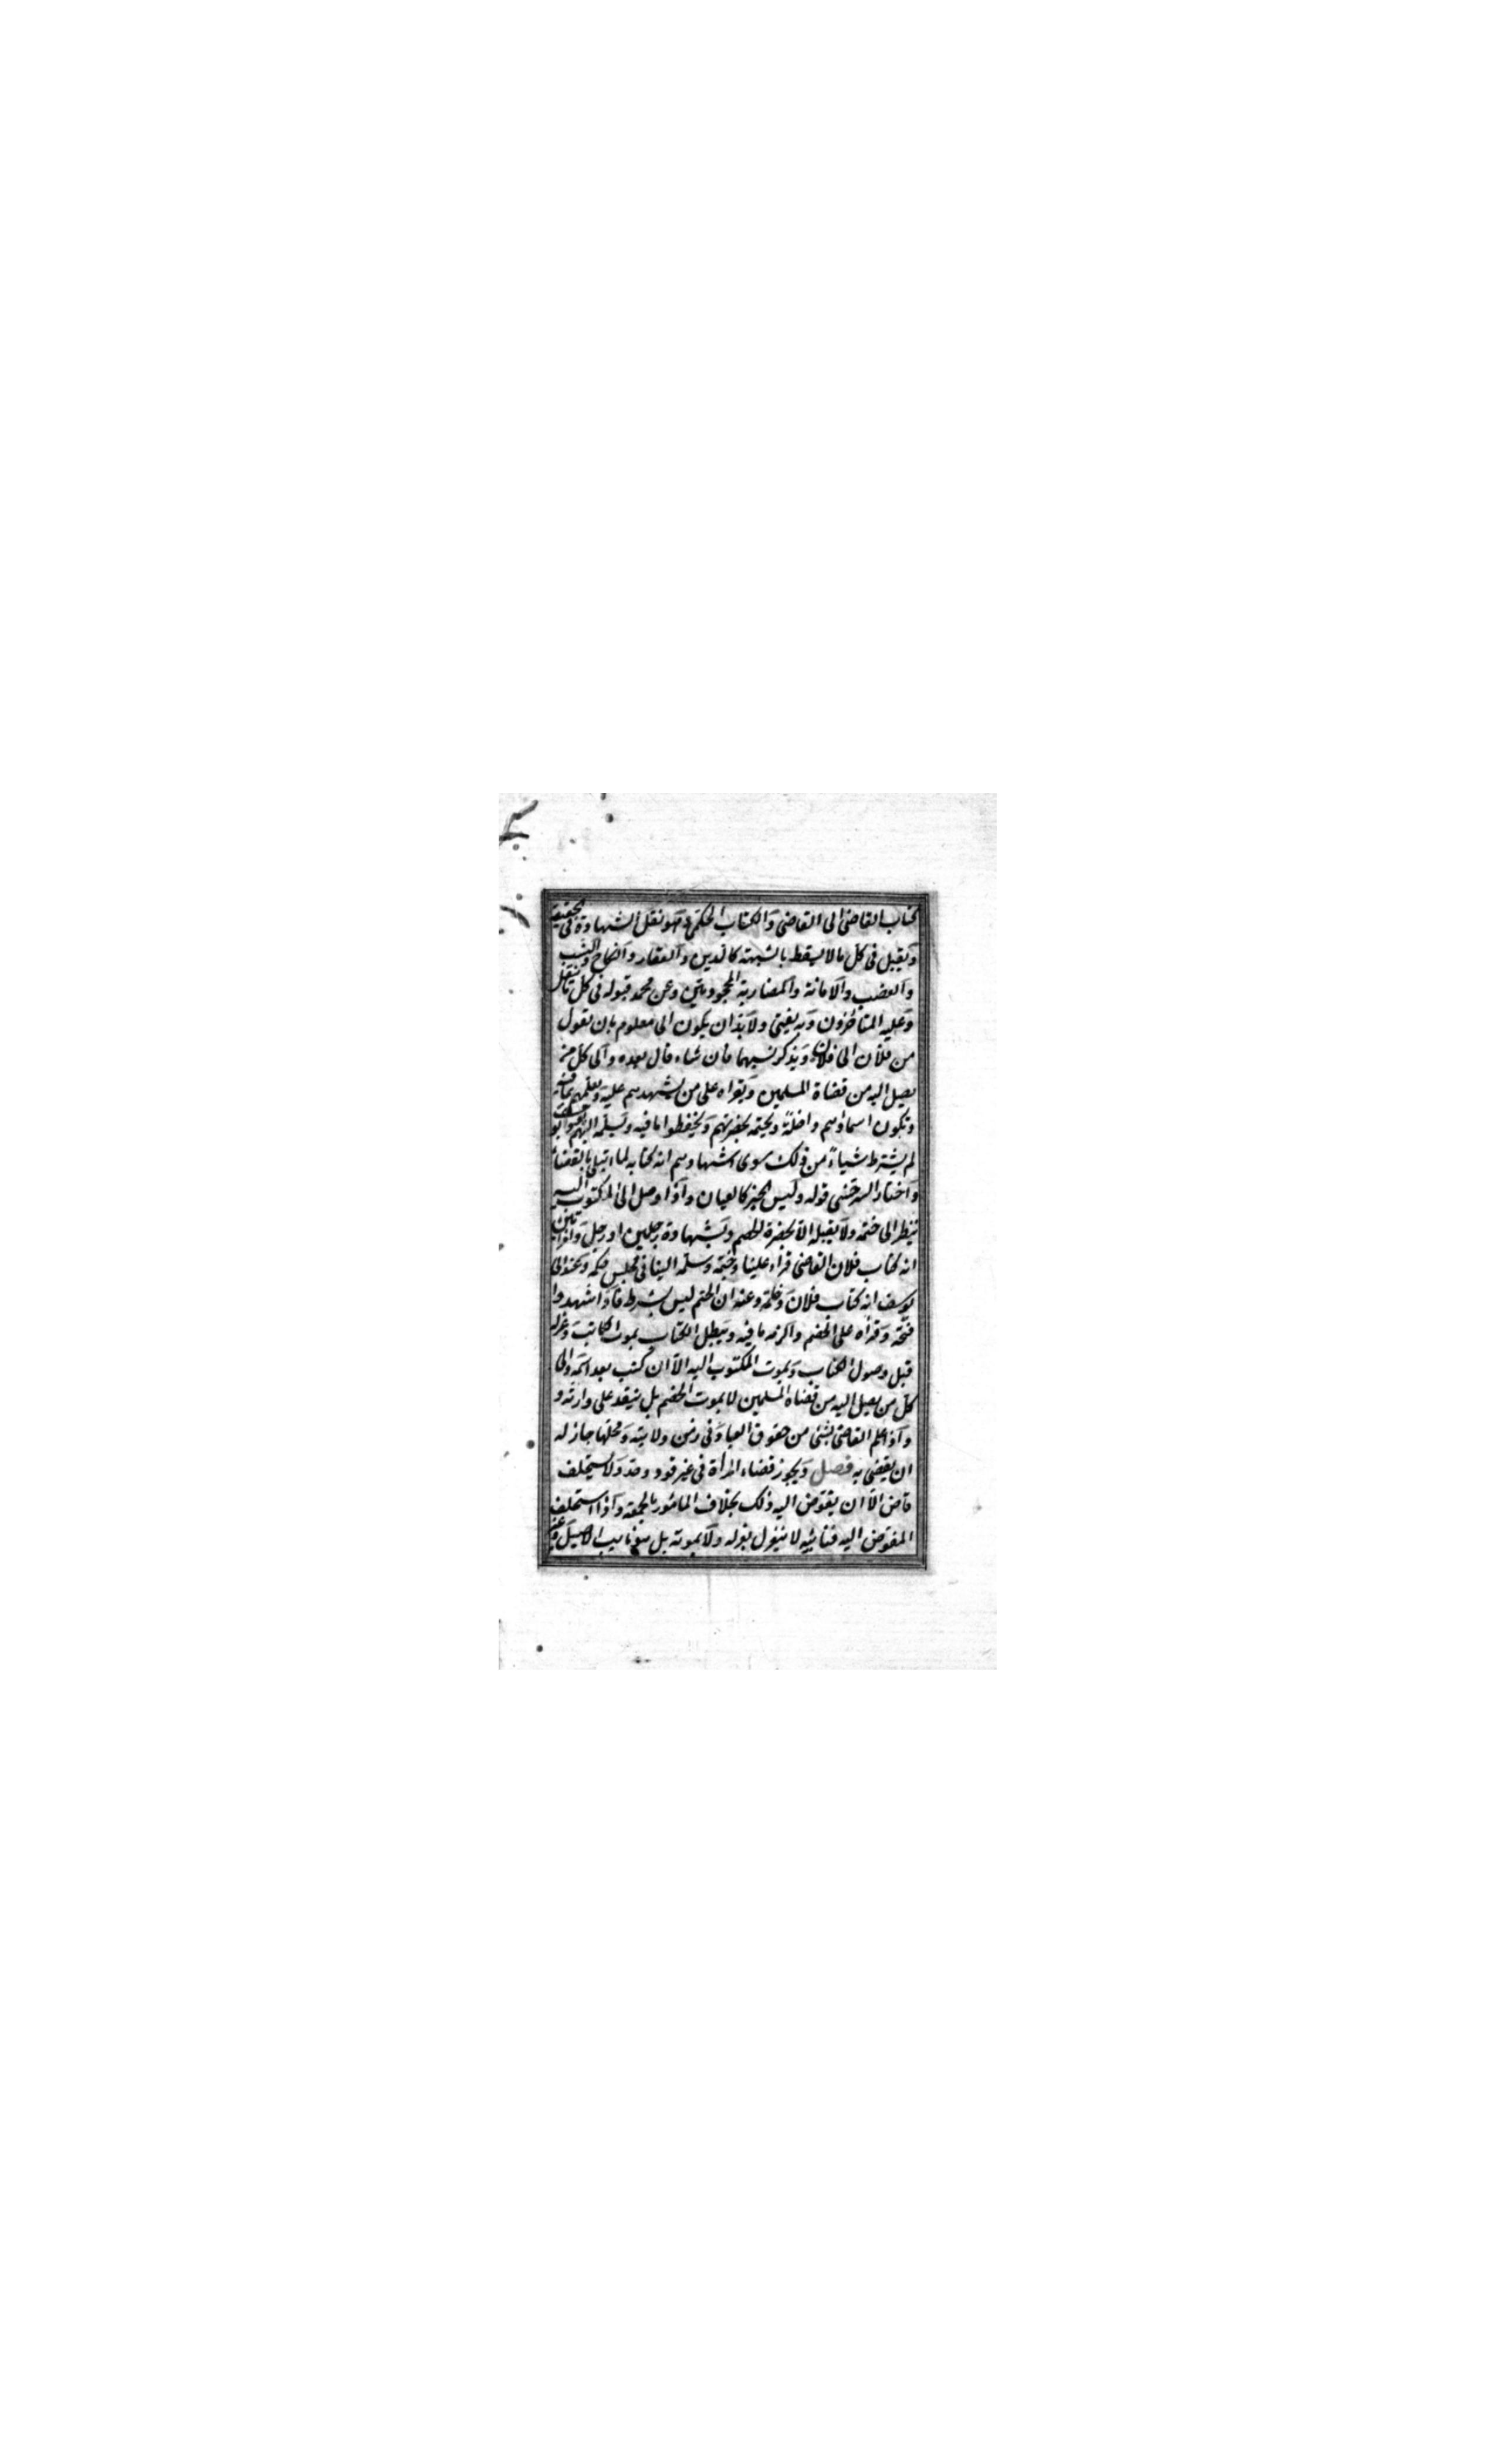 كتاب القاضى الى القاضى والكتاب الحكمى وهو نقل الشهادة فى الحقيقة
ويقبل فى كل ما لا يسقط بالشبهة كالدين والعقار والنكاح والنسب
والغصب والامانة والمضاربة المجحودتين وعن محمد قبوله فى كل ما ينقل
وعليه المتاخرون وبه يفتى ولا بد ان يكون الى معلوم بان يقول
من فلان الى فلان ويذكر نسبهما فان شاء قال بعده والى كل من
يصل اليه من قضاة المسلمين ويقراه على من يشهدهم عليه ويعلمهم بما فيه
وتكون اسماؤهم داخلة ويختمه بحضرتهم ويحفظوا ما فيه ويسلمه اليهم وابو يوسف
لم يشترط شياء من ذلك سوى اشهادهم انه كتابه لما ابتلى بالقضاء
واختار السرخسى قوله وليس الخبر كالعيان واذا وصل الى المكتوب اليه
ينظر الى ختمه ولا يقبله الا بحضرة الخصم وبشهادة رجلين او رجل وامراتين
انه كتاب فلان القاضى قراه علينا وختمه وسلمه الينا فى مجلس حكمه وعند ابى
يوسف انه كتاب فلان وختمه وعنه ان الختم ليس بشرط فاذا شهدوا
فتحه وقراه على الخصم والزمه ما فيه ويبطل الكتاب بموت الكاتب وعزله
قبل وصول الكتاب وبموت المكتوب اليه الا ان كتب بعد اسمه والى
كل من يصل اليه من قضاة المسلمين لا بموت الخصم بل ينفذ على وارثه و
واذا علم القاضى بشئ من حقوق العباد فى زمن ولايته ومحلها جاز له
ان يقضى به فصل ويجوز قضاء المرأة فى غير قود وحد ولا يستخلف
قاض الا ان يفوض اليه ذلك بخلاف المامور بالجمعة واذا استخلف
المفوض اليه فنائبه لا ينعزل بعزله ولا بموته بل هو نايب الاصيل